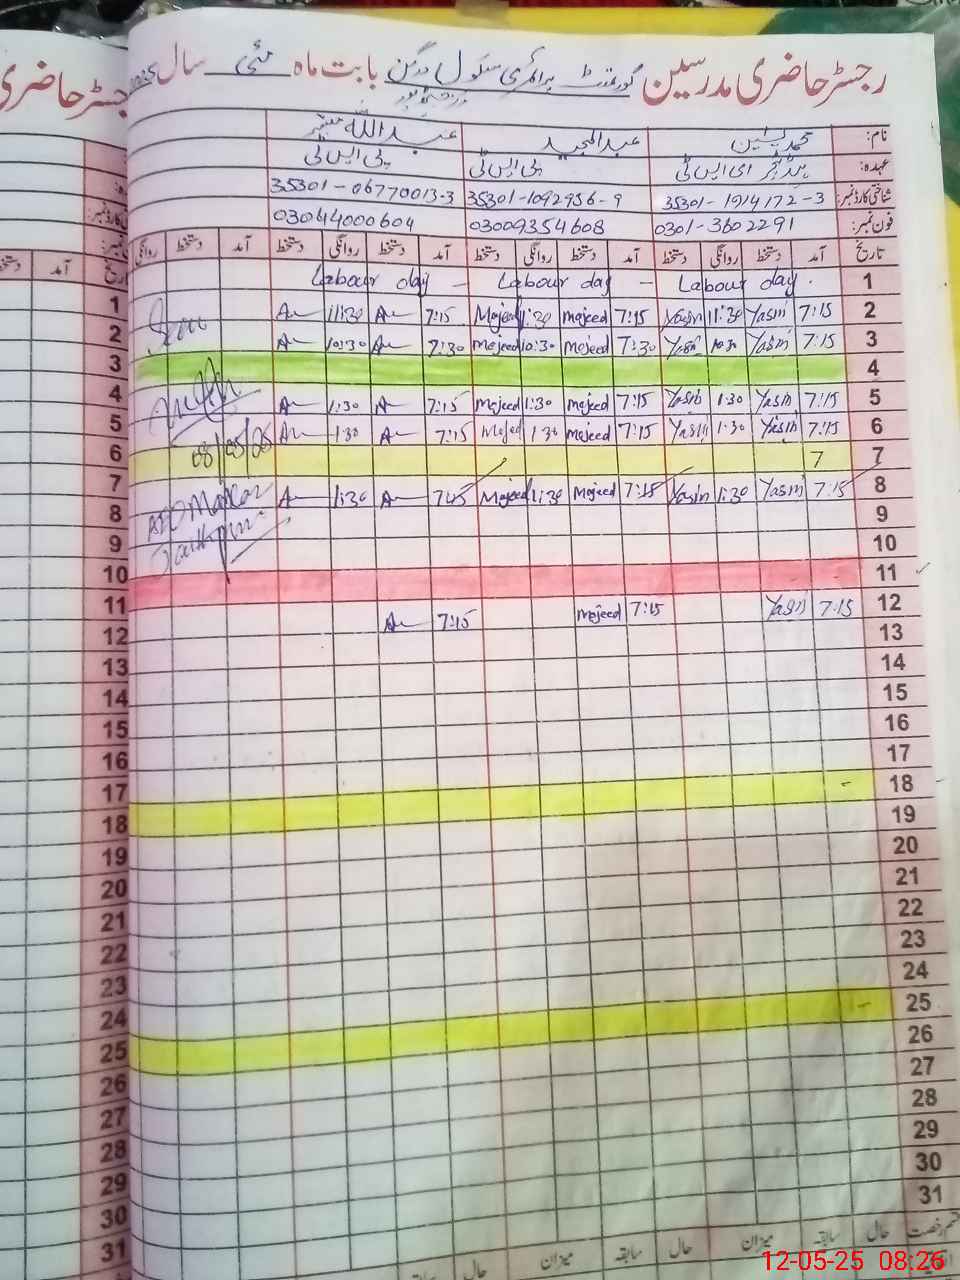 رجسٹر حاضری مدرسین گورنمنٹ پرائمری سکول بابت ماہ مئی سال
نام: محمد یٰسین عبدالمجید عبداللہ مبشر
عہدہ: ہیڈ ٹیچر ای ایس ٹی پی ایس ٹی پی ایس ٹی
شناختی کارڈ نمبر: 35301-1914172-3 35301-1092956-9 35301-06770013-3
فون نمبر: 0301-3602291 03009354608 03044000604
تاریخ آمد دستخط روانگی دستخط آمد دستخط روانگی دستخط آمد دستخط روانگی دستخط آمد دستخط روانگی
1 Labour day. Labour day - Labour day -
2 7:15 Yasin 11:30 Yasin 7:15 Majeed 11:30 Majeed 7:15 11:30
3 7:15 Yasin 10:30 Yasin 7:30 Majeed 10:30 Majeed 7:30 10:30
4
5 7:15 Yasin 1:30 Yasin 7:15 Majeed 1:30 Majeed 7:15 1:30
6 7:15 Yasin 1:30 Yasin 7:15 Majeed 1:30 Majeed 7:15 1:30
7 7
08/05/25
8 7:15 Yasin 1:30 Yasin 7:15 Majeed 1:30 Majeed 7:15 1:30
9
10
11
12 7:15 Yasin 7:15 Majeed 7:15
13
14
15
16
17
18
19
20
21
22
23
24
25
26
27
28
29
30
31
قسم رخصت حال سابقہ میزان حال سابقہ میزان حال سابقہ
12-05-25 08:26
جسٹر حاضری
آمد
1
2
3
4
5
6
7
8
9
10
11
12
13
14
15
16
17
18
19
20
21
22
23
24
25
26
27
28
29
30
31